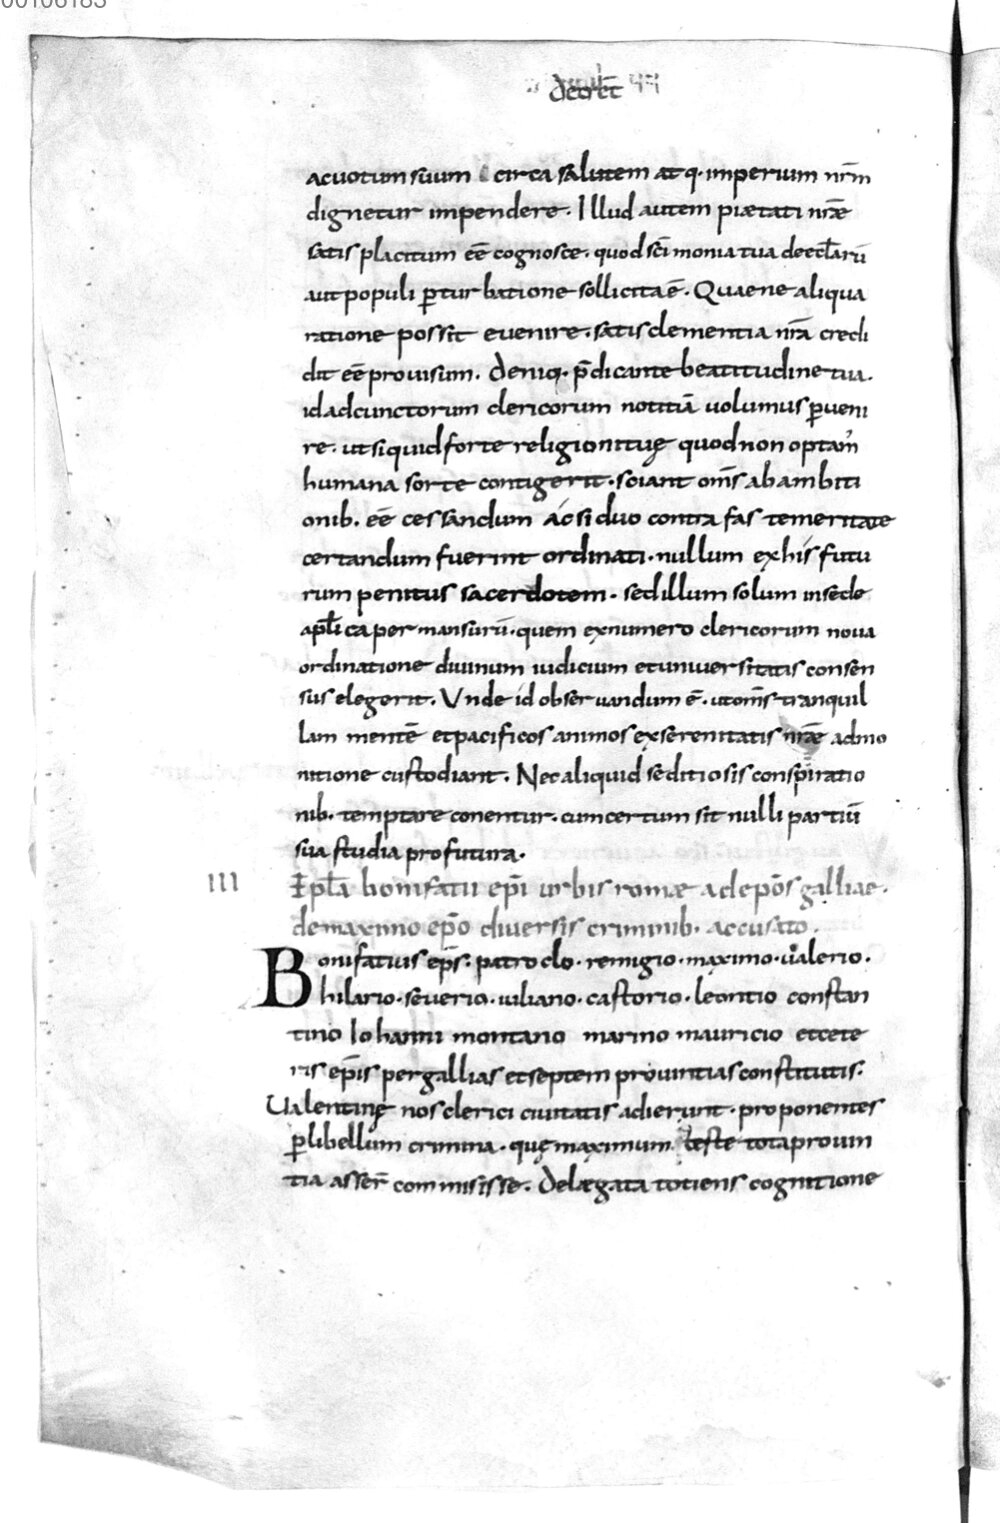 00106185
decret
ac uotum suum circa salutem atq. imperium nr̄m
dignetur impendere. Illud autem piætati nr̄æ
satis placitum eē cognosce. quod sc̄i monia tua de eccl̄arū
aut populi p̄turbatione sollicita ē. Quae ne aliqua
ratione possit euenire. satis clementia nr̄a credi
dit eē prouisum. Deniq. p̄dicante beatitudine tua.
id ad cunctorum clericorum notitiā uolumus p̄ueni
re. ut si quid forte religioni tuę quod non optam̉
humana sorte contigerit. sciant om̄s ab ambiti
onib. eē cessandum ac si duo contra fas temeritate
certandum fuerint ordinati. nullum ex his futu
rum penitus sacerdotem. sed illum solum in sede
apl̄ica permansurū. quem ex numero clericorum noua
ordinatione diuinum iudicium et uniuersitatis consen
sus elegerit. Unde id obseruandum ē. ut om̄s tranquil
lam mentē et pacificos animos ex serenitatis nr̄æ admo
nitione custodiant. Nec aliquid seditiosis conspiratio
nib. temptare conentur. cum certum sit nulli partiū
sua studia profutura.
III Epl̄a bonifatii ep̄i urbis romæ ad ep̄os galliae.
de maximo ep̄o diuersis criminib. accusato.
Bonifatius ep̄s. patroclo. remigio. maximo. ualerio.
hilario. seuerio. iuliano. castorio. leontio constan
tino Iohanni montano marino mauricio et cete
ris ep̄is per gallias et septem prouintias constitutis.
Ualentinę nos clerici ciuitatis adierunt. proponentes
p̄ libellum crimina. quę maximum teste tota prouin
tia asser̄ commisisse. Delægata totiens cognitione